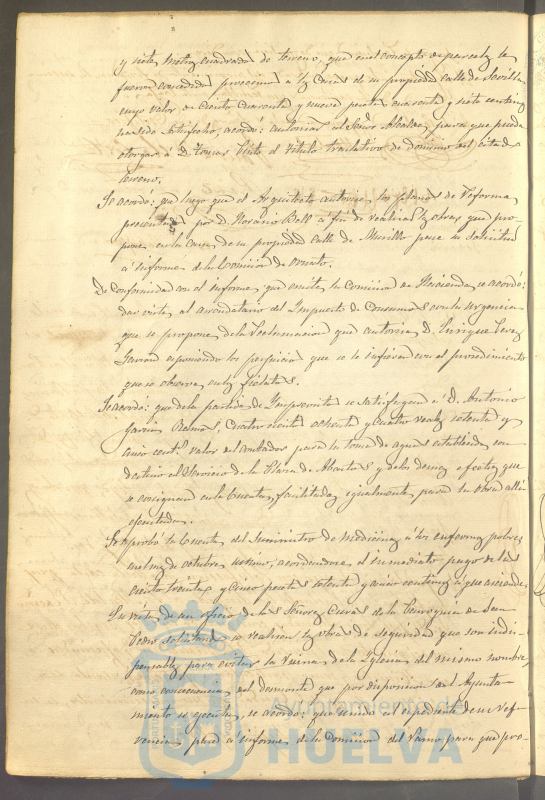 y siete metros cuadrados de terreno, que en el concepto de parcela, le
fueron concedidos procedentes á las Casas de su propiedad calle de Sevilla
cuyo valor de ciento cuarenta y nueve pesetas cuarenta y siete centimos
ha sido satisfecho, acordó: autorizar al Señor Alcalde, para que pueda
otorgar á D. Tomas Vinto el titulo traslativo de dominio del citado
terreno.
Se acordó: que luego que el Arquitecto autorice los planos de reforma
presentados por D. Horacio Bell á fin de realizar las obras que pro-
pone en la Casa de su propiedad calle de Murillo pase su solicitud
á informe de la Comision de ornato.
De conformidad con el informe que emite la Comision de Hacienda, se acordó:
dar vista al arrendatario del Impuesto de Consumos con la urgencia
que se propone de la reclamacion que autoriza D. Enrique Perez
exponiendo los perjuicios que se le infieren con el procedimiento
que se observa en los fielatos.
Se acordó: que de la partida de Imprevistos se satisfagan á D. Antonio
Garcia Ramos, cuatrocientos ochenta y cuatro reales setenta y
cinco cent.s valor del para la toma de aguas establecida con
destino al servicio de la Plaza de Abastos y de los demas efectos que
se consignan en la Cuenta, facilitados igualmente para la obra allí
ejecutada.
Se aprobó la Cuenta del suministro de medicinas á los enfermos pobres
en el mes de octubre ultimo, acordandose el inmediato pago de las
ciento treinta y cinco pesetas setenta y cinco centimos á que asciende.
En vista de un oficio de los Señores Curas de la Parroquia de San
Pedro solicitando se realicen las obras de seguridad que son indis-
pensables para evitar la ruina de la Iglesia del mismo nombre,
como consecuencia del desmonte que por disposicion del Ayunta-
miento se ejecuta, se acordó: que unido al expediente de su refe-
rencia pase á informe de la Comision del Ramo para que pro-
Ayuntamiento de
HUELVA